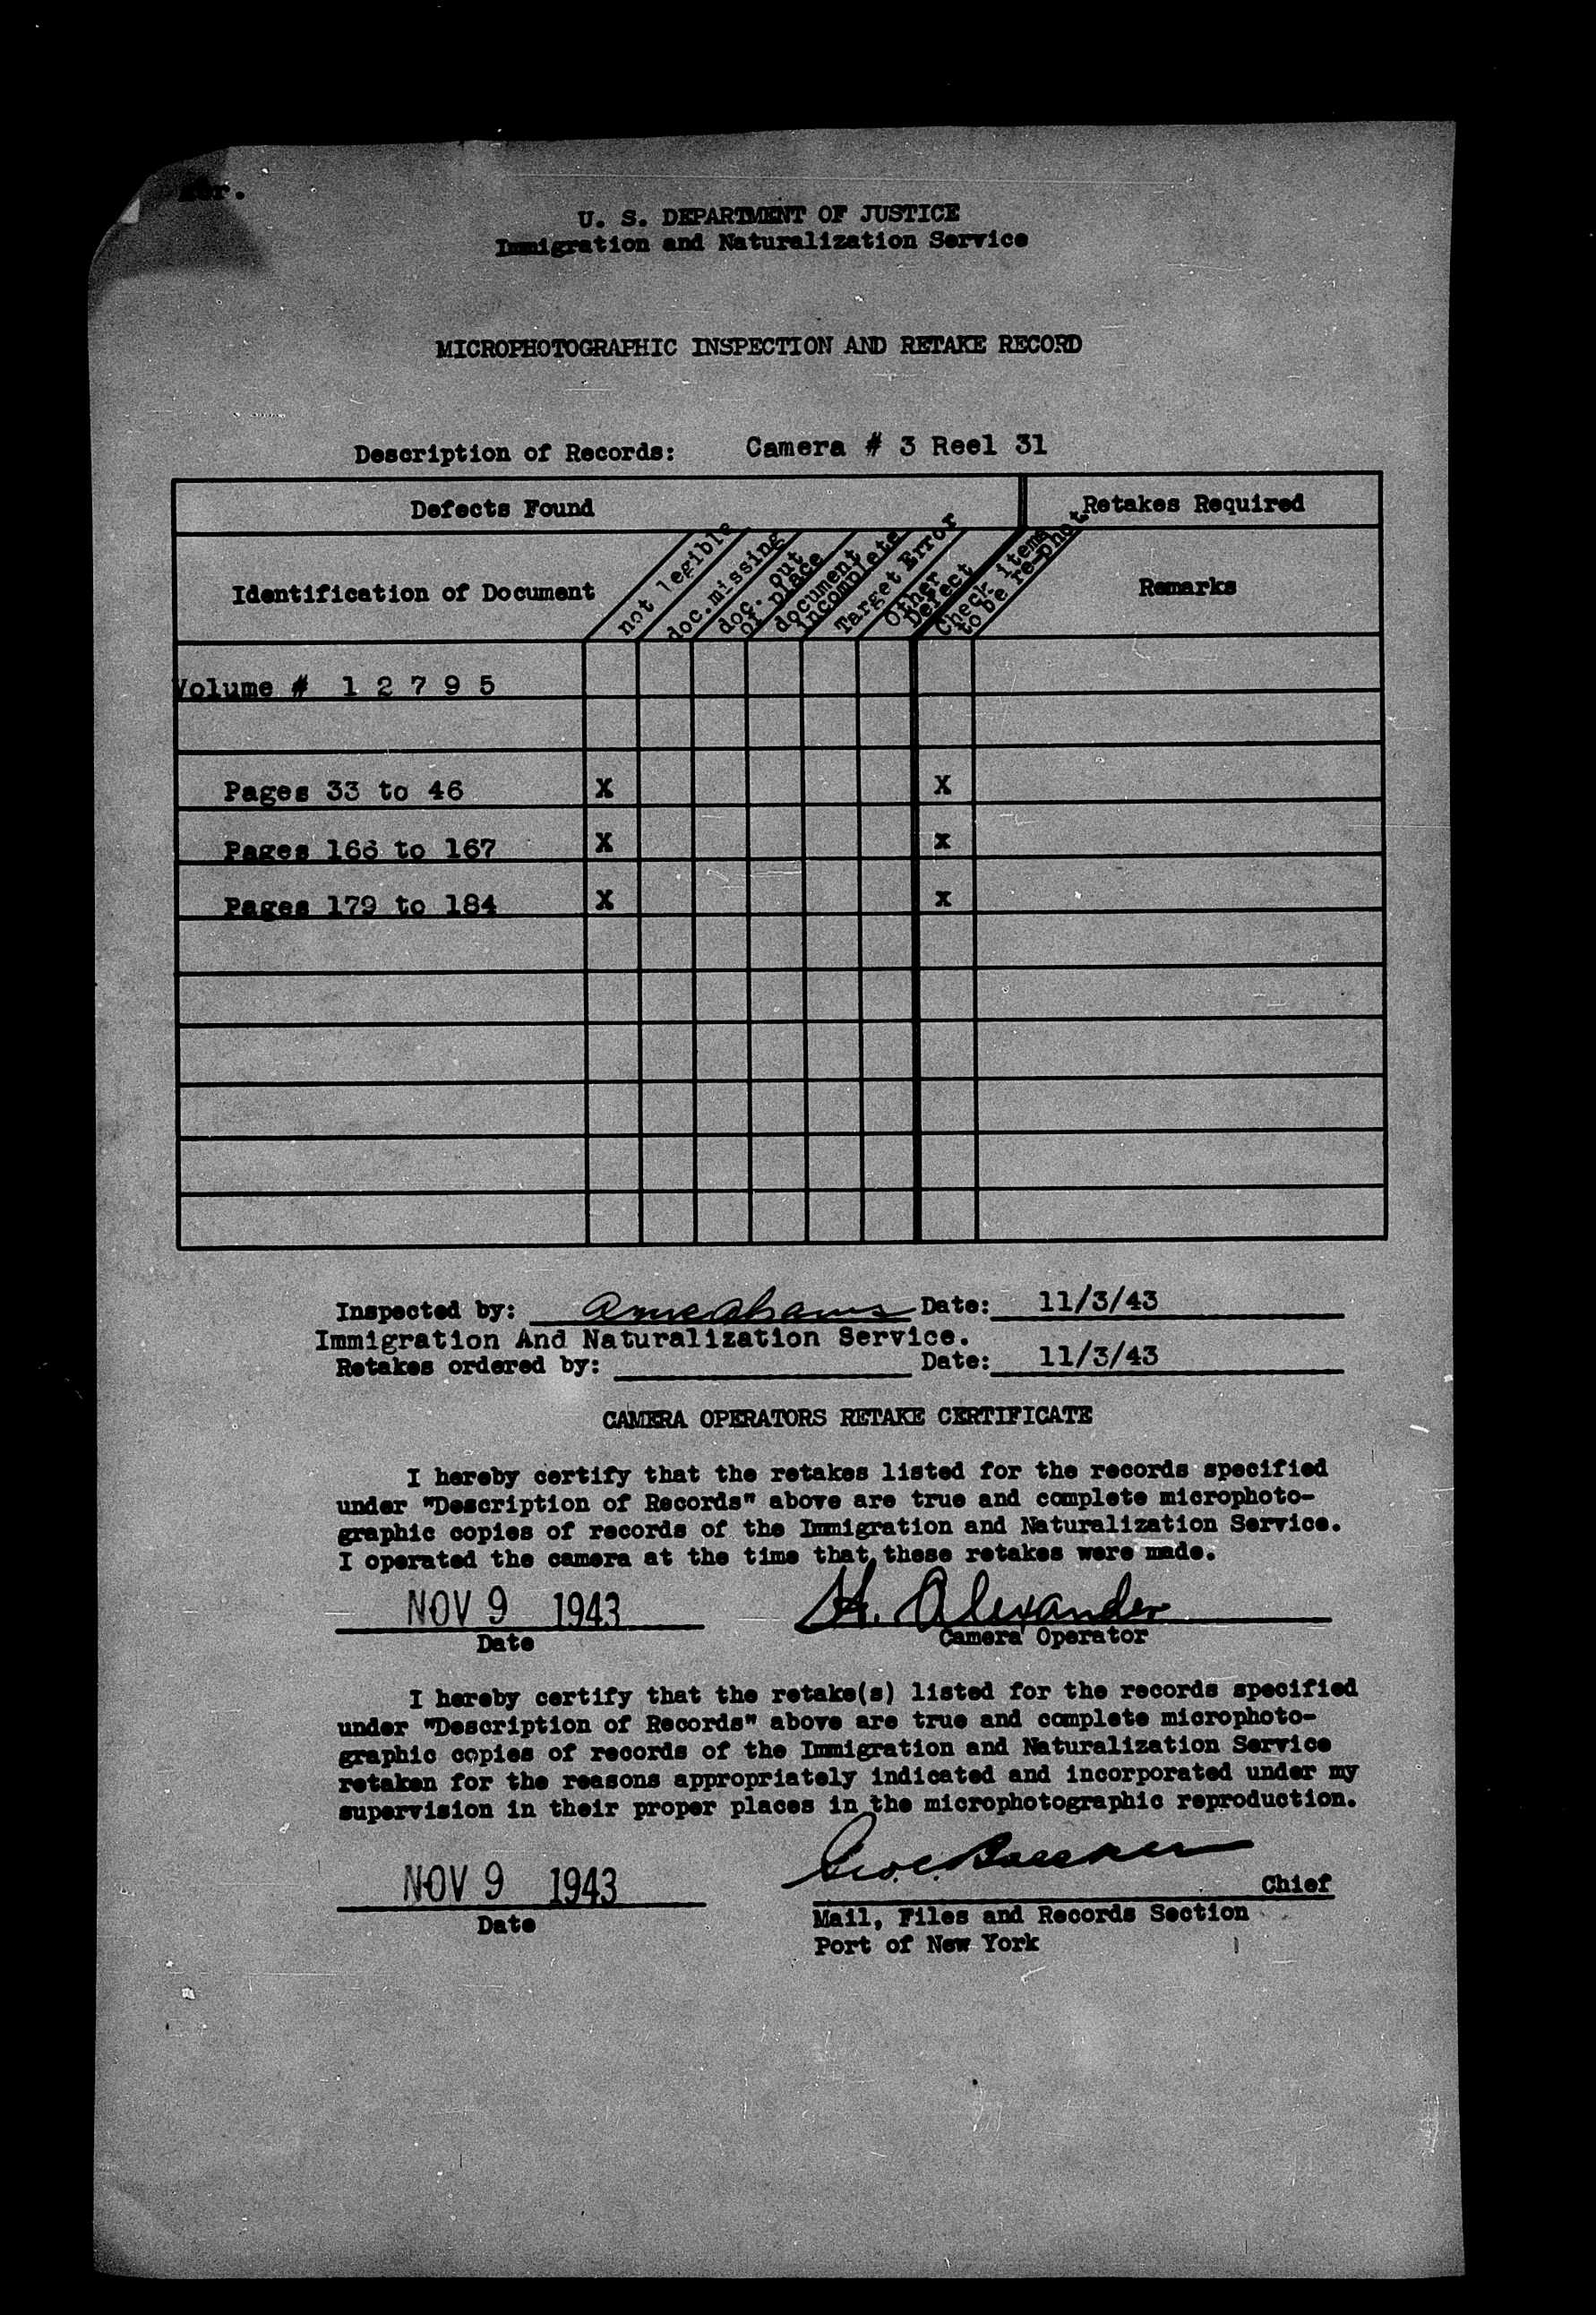 U. S. DEPARTMENT OF JUSTICE
Immigration and Naturalization Service
MICROPHOTOGRAPHIC INSPECTION AND RETAKE RECORD
Description of Records: Camera # 3 Reel 31
Defects Found
Retakes Required
Identification of Document
not legible
doc.missing
doc. out
of place
document
incomplete
Target Error
Other
Defect
Check items
to be re-phot
Remarks
Volume # 1 2 7 9 5
Pages 33 to 46 X X
Pages 166 to 167 X x
Pages 179 to 184 X x
Inspected by: Date: 11/3/43
Immigration And Naturalization Service.
Retakes ordered by: Date: 11/3/43
CAMERA OPERATORS RETAKE CERTIFICATE
I hereby certify that the retakes listed for the records specified
under "Description of Records" above are true and complete microphoto-
graphic copies of records of the Immigration and Naturalization Service.
I operated the camera at the time that these retakes were made.
NOV 9 1943 H. Alexander
Date Camera Operator
I hereby certify that the retake(s) listed for the records specified
under "Description of Records" above are true and complete microphoto-
graphic copies of records of the Immigration and Naturalization Service
retaken for the reasons appropriately indicated and incorporated under my
supervision in their proper places in the microphotographic reproduction.
NOV 9 1943 Chief
Date
Mail, Files and Records Section
Port of New York